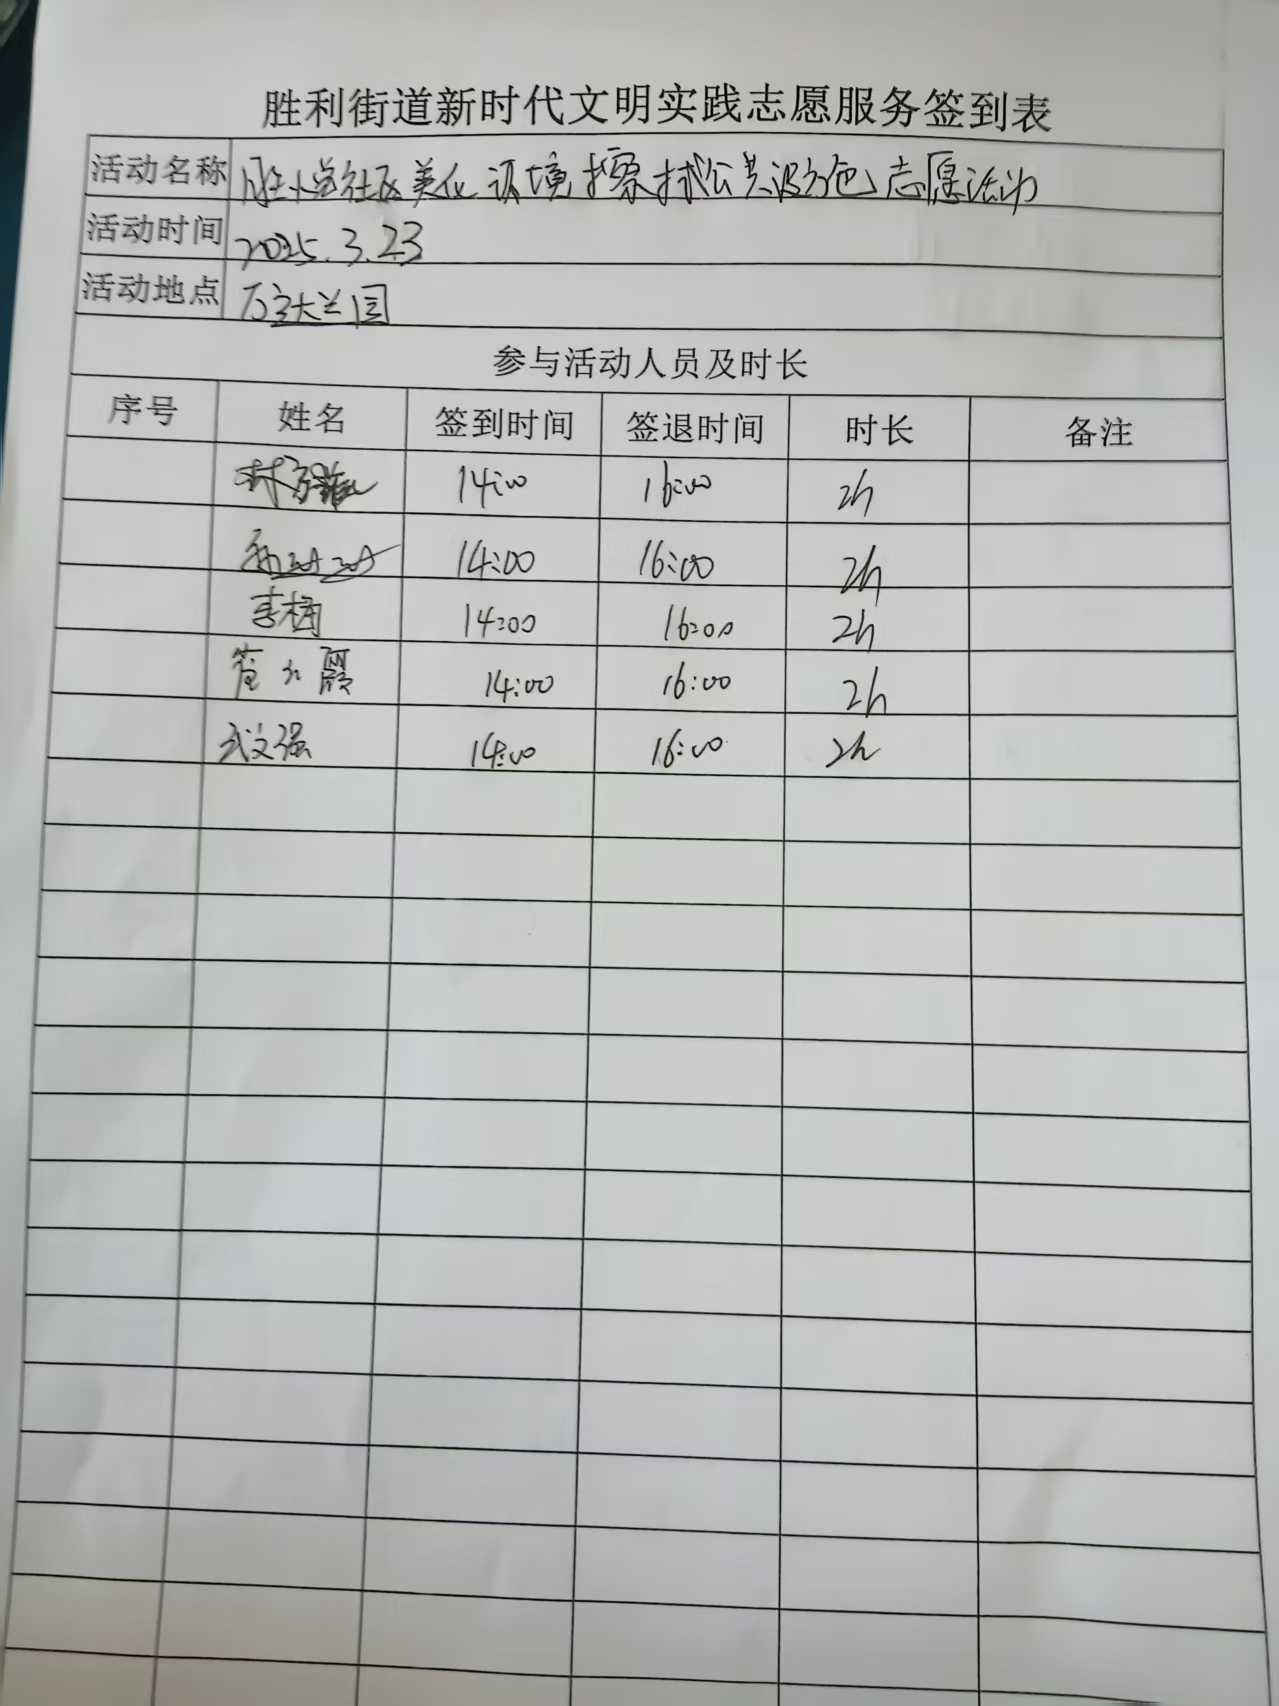 胜利街道新时代文明实践志愿服务签到表
活动名称 社区美化环境擦拭公共设施 志愿活动
活动时间 2025.3.23
活动地点 万达兰园
参与活动人员及时长
序号 姓名 签到时间 签退时间 时长 备注
14:00 16:00 2h
14:00 16:00 2h
李楠 14:00 16:00 2h
霞 14:00 16:00 2h
武文强 14:00 16:00 2h